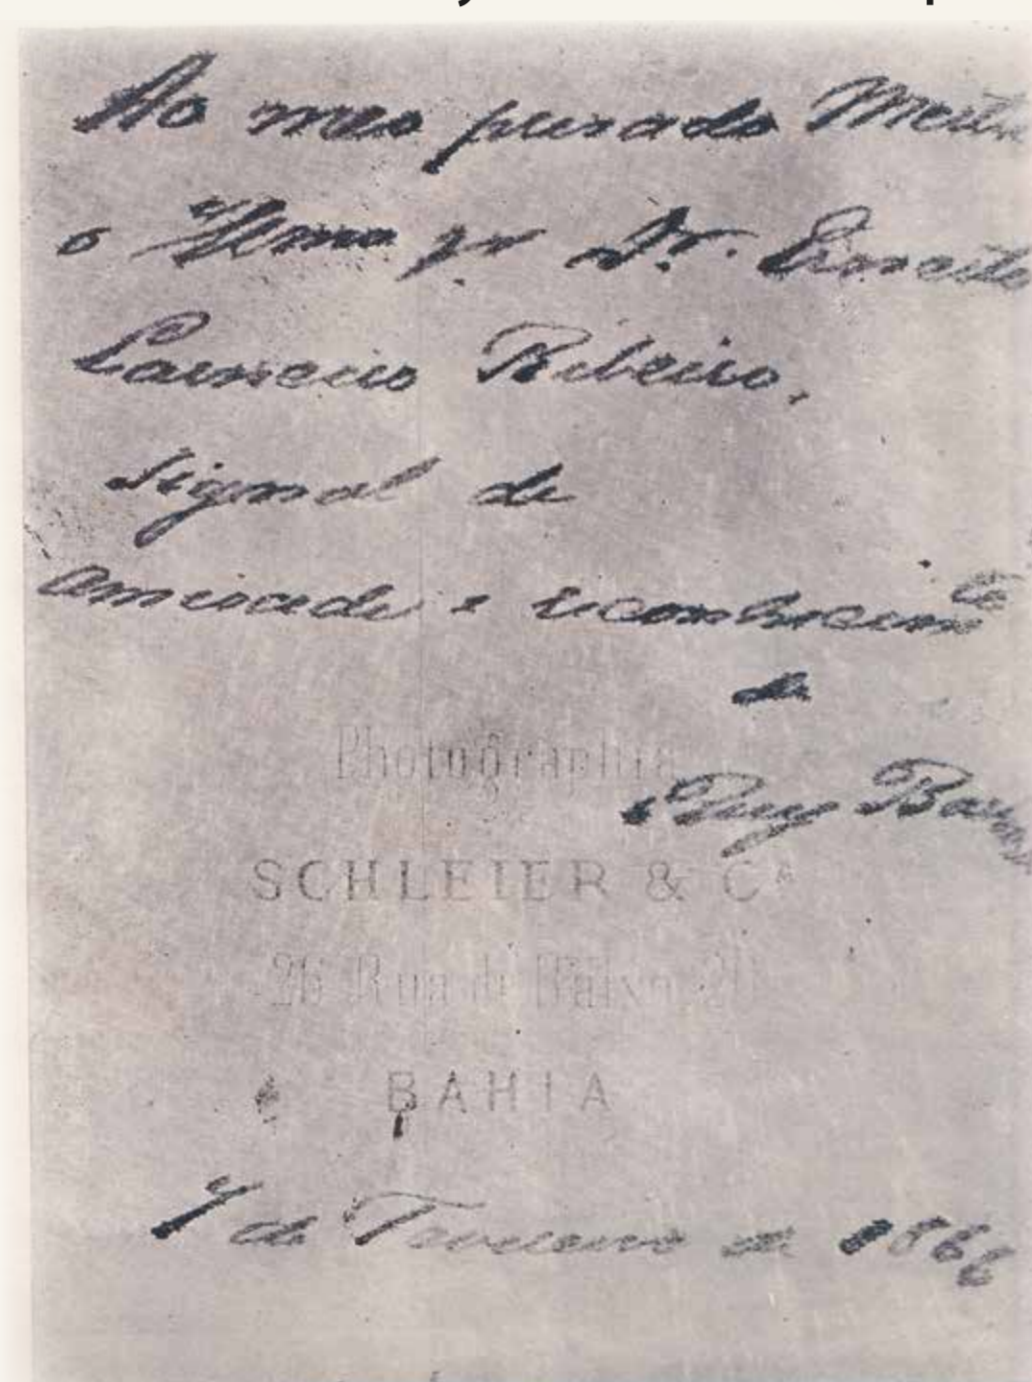 Ao meo presado Mestre
o Illmo Sr. Dr. Ernesto
Carneiro Ribeiro,
signal de
amisade e reconhecimto
de
Ruy Barbosa
Photographia
SCHLEIER & CA
Rua de Baixo 20
BAHIA
de Fevereiro de 1866